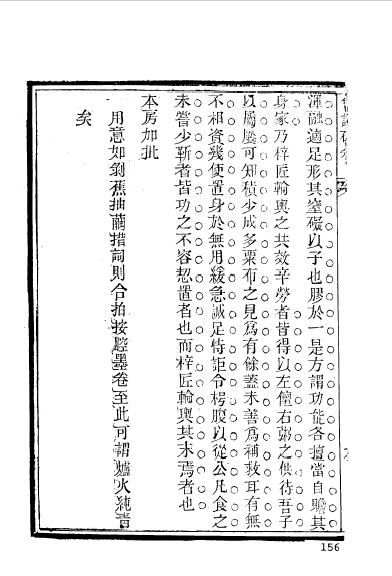 渾融適足形其窒礙以子也膠於一是方謂功能各擅當自贍其
身家乃梓匠輪輿之共效辛勞者皆得以左僮右粥之供待吾子
以屬屢可知積少成多粟布之見為有餘蓋未善為補救耳有無
不相資幾使置身於無用緩急誠足恃詎令枵腹以從公凡食之
未嘗少靳者皆功之不容恝置者也而梓匠輪輿其末焉者也
本房加批
用意如剝蕉抽繭措詞則合拍按腔墨卷至此可謂爐火純青
矣
156